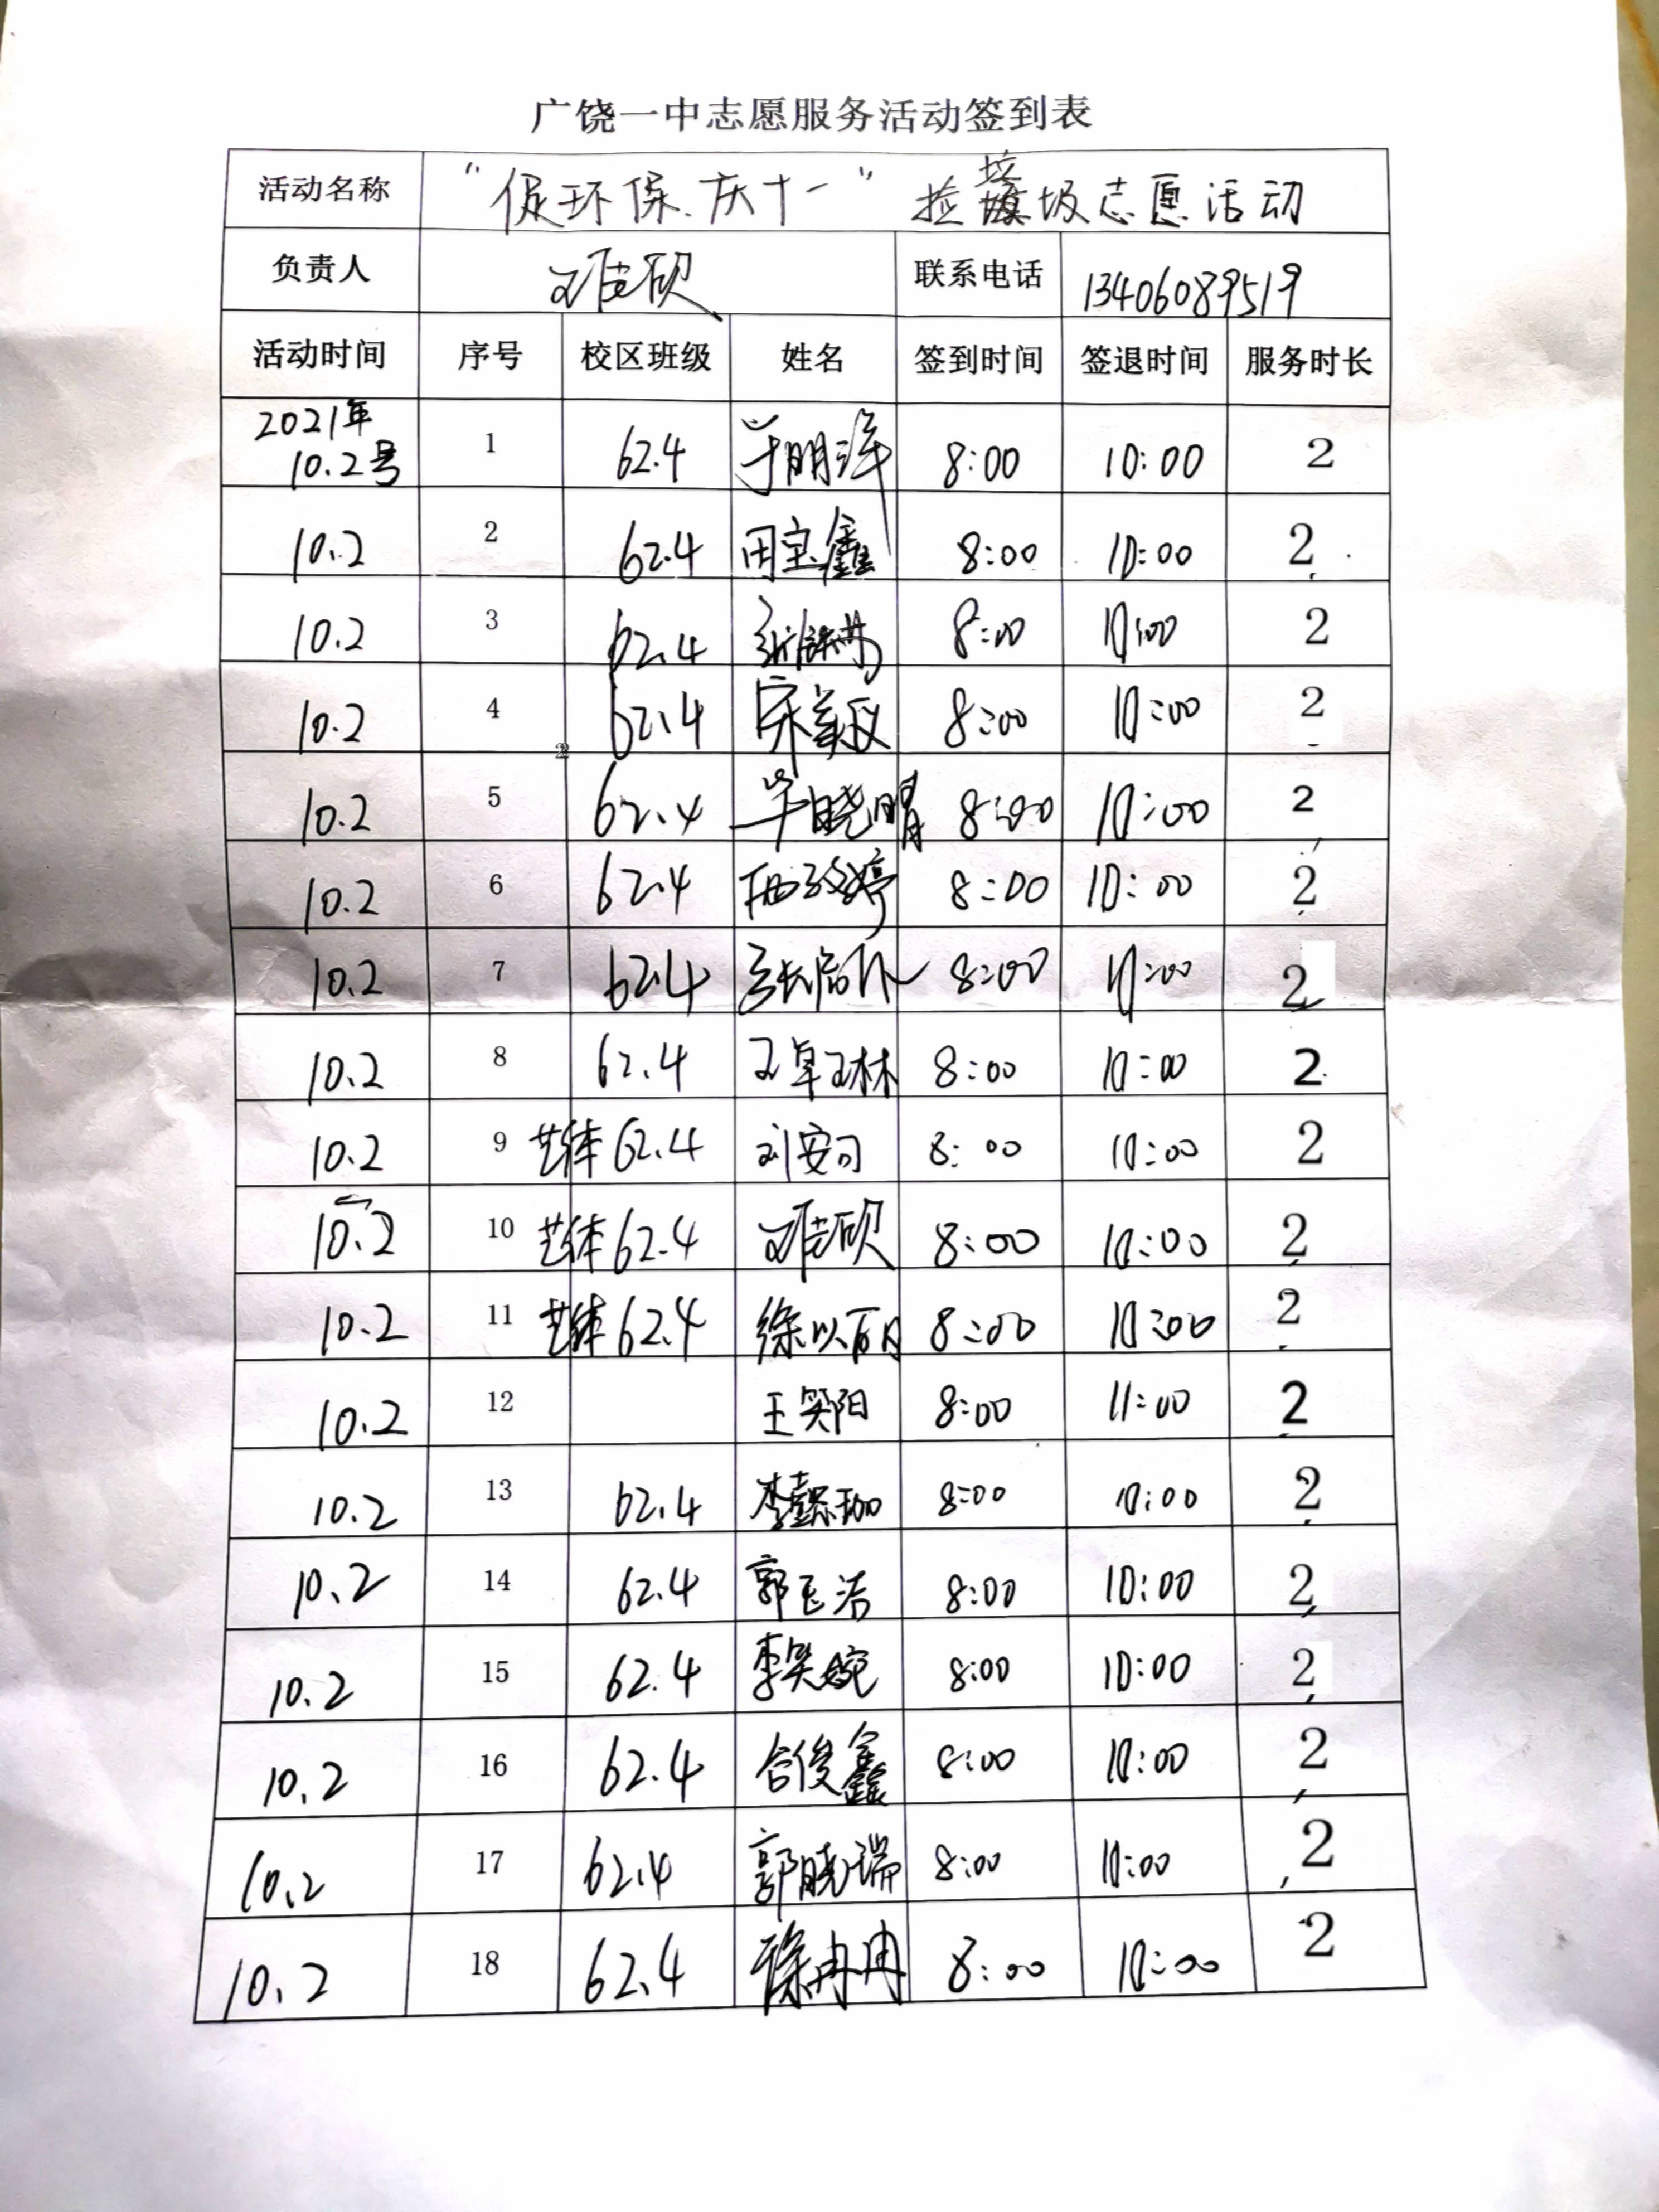 广饶一中志愿服务活动签到表
活动名称 “促环保.庆十一” 捡垃圾志愿活动
负责人 联系电话 13406089519
活动时间 序号 校区班级 姓名 签到时间 签退时间 服务时长
2021年
10.2号 1 62.4 8:00 10:00 2
10.2 2 62.4 周宝鑫 8:00 10:00 2
10.2 3 62.4 8:00 10:00 2
10.2 4 62.4 8:00 10:00 2
10.2 5 62.4 8:00 10:00 2
10.2 6 62.4 8:00 10:00 2
10.2 7 62.4 8:00 10:00 2
10.2 8 62.4 王卓琳 8:00 10:00 2
10.2 9 艺体62.4 8:00 10:00 2
10.2 10 艺体62.4 8:00 10:00 2
10.2 11 艺体62.4 8:00 10:00 2
10.2 12 王笑阳 8:00 11:00 2
10.2 13 62.4 李懿珈 8:00 10:00 2
10.2 14 62.4 郭玉洁 8:00 10:00 2
10.2 15 62.4 李笑婉 8:00 10:00 2
10.2 16 62.4 8:00 10:00 2
10.2 17 62.4 郭晓瑞 8:00 10:00 2
10.2 18 62.4 徐冉冉 8:00 10:00 2